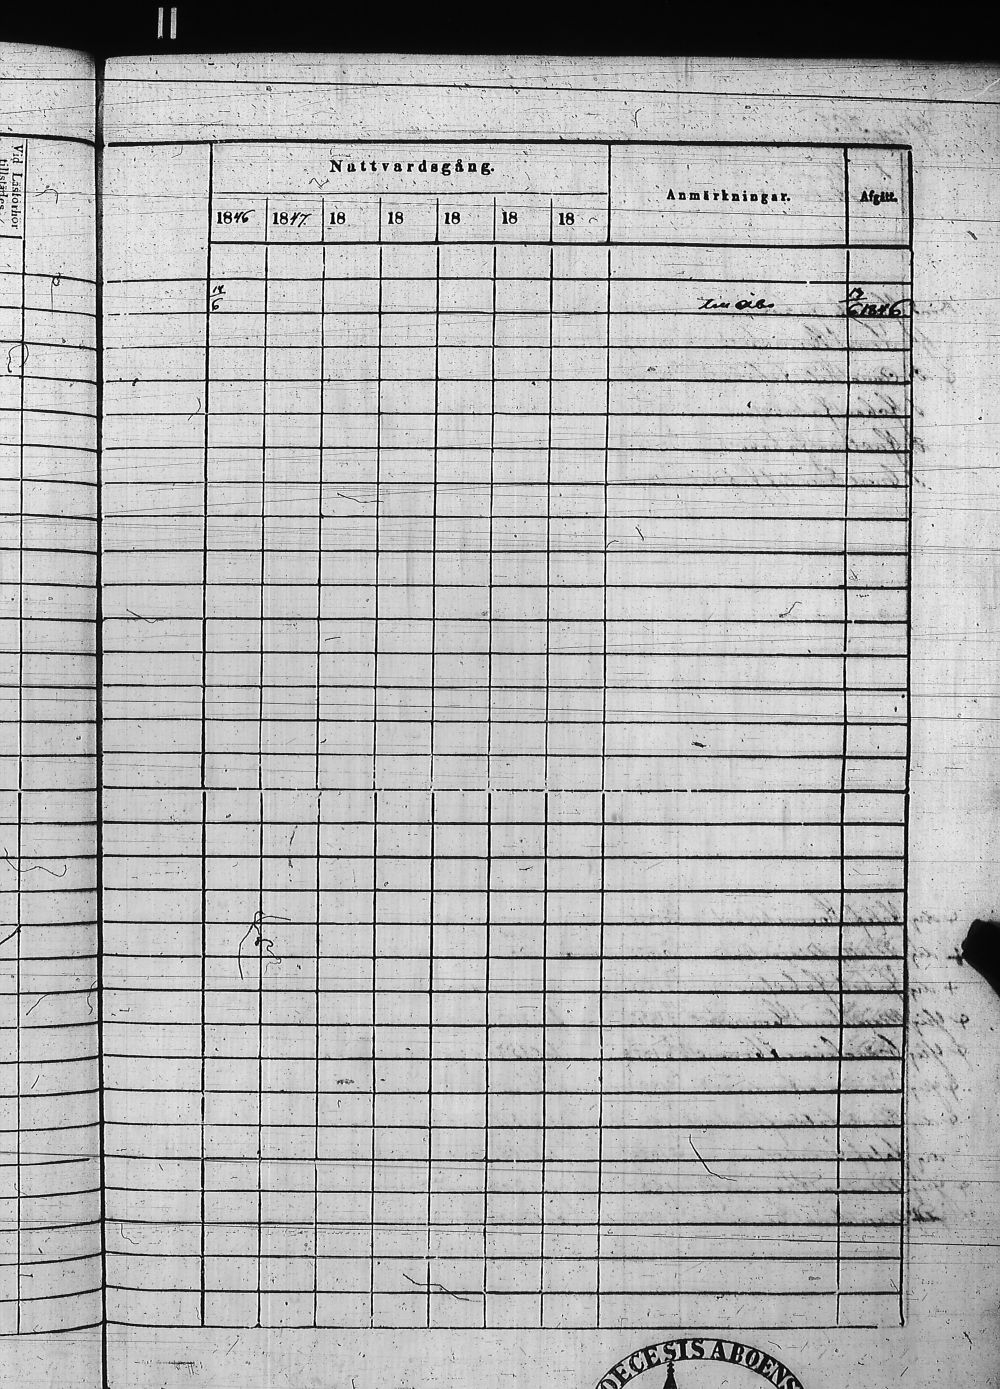 Vid Läsförhör
tillstädes.
Nattvardsgång.
Anmärkningar.
Afgått.
1846 1847. 18 18 18 18 18
17/6 till Åbo 17/6 1846
DECESIS ABOENS